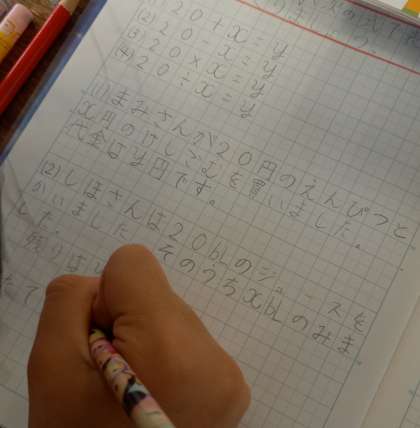 (1) 20+x=y
(2) 20-x=y
(3) 20×x=y
(4) 20÷x=y
(1) まみさんが20円のえんぴつと
x円のけしゴムを買いました。
代金はy円です。
(2) しほさんは20dLのジュースを
かいました。そのうちxdLのみま
した。
残りは